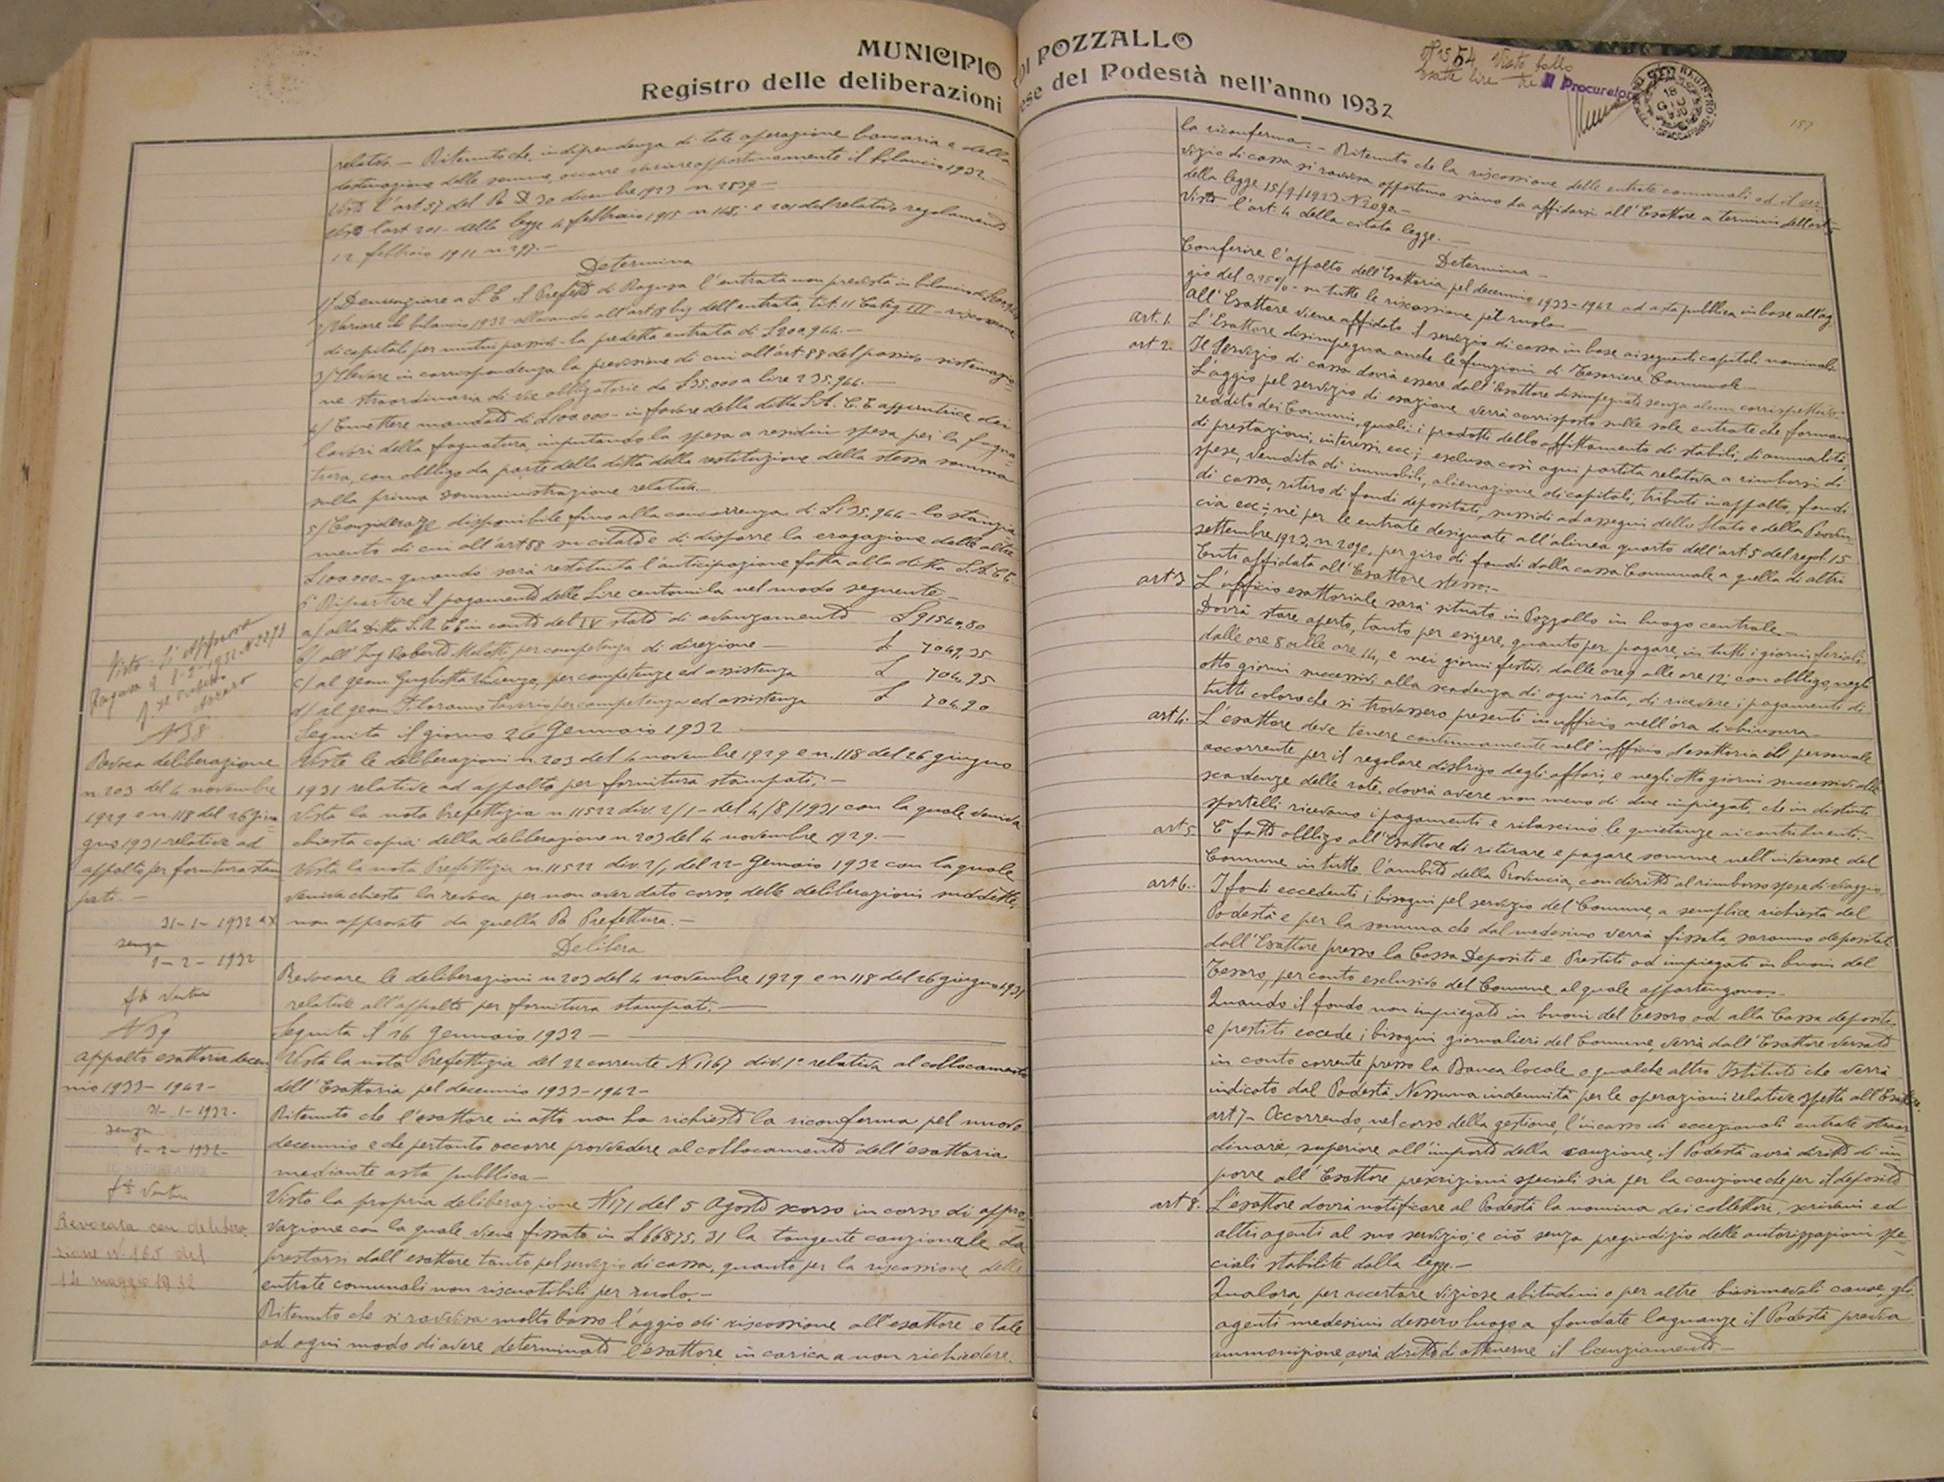 MUNICIPIO DI POZZALLO
Registro delle deliberazioni prese del Podestà nell'anno 1932
relativa — Ritenuto che, indipendenza di tale operazione bancaria e della
destinazione delle somme, occorre variare opportunamente il bilancio 1932 —
Visto l'art 57 del R. D. 30 dicembre 1923 n. 2839 —
Visto l'art 201 della legge 4 febbraio 1915 n. 148, e 201 del relativo regolamento
12 febbraio 1911 n. 297. —
Determina
1/ Denunziare a S. E. il Prefetto di Ragusa l'entrata non prevista in bilancio di
2/ Variare il bilancio 1932 allocando all'art 18 bis dell'entrata, tit. II Categ III — riscossione
di capitali per mutui passivi — la predetta entrata di £200,964. —
3/ Elevare in corrispondenza la previsione di cui all'art 88 del passivo — sistemazio
ne straordinaria di vie obbligatorie da £35.000 a lire 235.964. —
4/ Emettere mandato di £100.000 — in favore della ditta S.A.C.E appaltatrice dei
lavori della fognatura, imputando la spesa a residui spesa per la fogna=
tura, con obbligo da parte della ditta della restituzione della stessa somma
sulla prima somministrazione relativa. —
5/ Considerare disponibile fino alla concorrenza di £135.964 — lo stanzia
mento di cui all'art 88 su citato e di disporre la erogazione delle altre
£100000. — quando sarà restituita l'anticipazione fatta alla ditta S.A.C.E.
6 Ripartire il pagamento delle Lire centomila nel modo seguente. —
a/ alla Ditta S.A.C.E in conto del IV stato di avanzamento £91540,80
b/ all'Ing Roberto Melotti, per competenza di direzione — £ 7049,35
c/ al geom Gugliotta Vincenzo, per competenze ed assistenza £ 704,95
d/ al geom Floramo Saverio per competenza ed assistenza £ 704,90
Visto. Si approva
Ragusa lì 8-2-1932 N 2293
Il Prefetto
N 38
Seguita il giorno 26 Gennaio 1932
Revoca deliberazione
n. 203 del 4 novembre
1929 e n. 118 del 26 giu
gno 1931 relative ad
appalto per fornitura stam
pati. —
Viste le deliberazioni n. 203 del 4 novembre 1929 e n. 118 del 26 giugno
1931 relative ad appalto per fornitura stampati. —
Vista la nota Prefettizia n. 11522 div. 2/1 — del 4/8/1931 con la quale veniva
chiesta copia della deliberazione n. 203 del 4 novembre 1929. —
Vista la nota Prefettizia n. 11522 div 2/1 del 22 Gennaio 1932 con la quale
veniva chiesta la revoca per non aver dato corso, delle deliberazioni suddette,
non approvate da quella R. Prefettura. —
31-1-1932
senza
1-2-1932
Delibera
Revocare le deliberazioni n 203 del 4 novembre 1929 e n 118 del 26 giugno 1931
relative all'appalto per fornitura stampati. —
N 39
Seguita il 26 Gennaio 1932 —
appalto esattoria decen
nio 1933-1942 —
Vista la nota Prefettizia del 22 corrente N. 1167 div. 1ª relativa al collocamento
dell'Esattoria pel decennio 1933-1942 —
Ritenuto che l'esattore in atto non ha richiesto la riconferma pel nuovo
decennio e che pertanto occorre provvedere al collocamento dell'esattoria
mediante asta pubblica —
31-1-1932 —
senza
1-2-1932 —
IL SEGRETARIO
Vista la propria deliberazione N 171 del 5 Agosto scorso in corso di appro=
vazione con la quale viene fissata in £66875,31 la tangente cauzionale da
prestarsi dall'esattore tanto pel servizio di cassa, quanto per la riscossione delle
entrate comunali non riscuotibili per ruolo. —
Revocata con delibera
zione n. 165 del
14 maggio 1932
Ritenuto che si ravvisa molto basso l'aggio di riscossione all'esattore e tale
ad ogni modo di avere determinato l'esattore in carica a non richiedere
Visto bollo
Il Procuratore
157
la riconferma. — Ritenuto che la riscossione delle entrate comunali ed il ser
vizio di cassa si ravvisa opportuno siano da affidarsi all'Esattore a termini dell'art 5
della legge 15/9/1923 N 2090. —
Visto l'art. 4 della citata legge. —
Determina —
Conferire l'appalto dell'Esattoria pel decennio 1933-1942 ad asta pubblica in base all'ag
gio del 0,95% — su tutte le riscossione pel ruolo —
All'Esattore viene affidato il servizio di cassa in base ai seguenti capitoli nominali
art. 1. L'Esattore disimpegna anche le funzioni di Tesoriere Comunale —
art 2. Il Servizio di cassa dovrà essere dall'Esattore disimpegnato senza alcun corrispettivo —
L'aggio pel servizio di esazione verrà corrisposto sulle sole entrate che formano
reddito dei Comuni, quali: i prodotti dello affittamento di stabili, di annualità,
di prestazioni, interessi, ecc; esclusa così ogni partita relativa a rimborsi di
spese, vendita di immobili, alienazione di capitali, tributi in appalto, fondi
di cassa, ritiro di fondi depositati, sussidi ed assegni dello Stato e della Provin
cia ecc= nè per le entrate designate all'alinea quarto dell'art. 5 del regol 15
settembre 1923, n. 2090, per giro di fondi dalla cassa Comunale a quella di altri
Enti affidata all'Esattore stesso. —
art 3 L'ufficio esattoriale sarà situato in Pozzallo in luogo centrale. —
Dovrà stare aperto, tanto per esigere, quanto per pagare, in tutti i giorni feriali,
dalle ore 8 alle ore 14, e nei giorni festivi dalle ore 9 alle ore 12; con obbligo, negli
otto giorni successivi alla scadenza di ogni rata, di ricevere i pagamenti di
tutti coloro che si trovassero presenti in ufficio nell'ora di chiusura —
art 4. L'esattore deve tenere continuamente nell'ufficio d'esattoria il personale
occorrente per il regolare disbrigo degli affari, e negli otto giorni successivi alle
scadenze delle rate dovrà avere non meno di due impiegati, che in distinti
sportelli ricevano i pagamenti e rilascino le quietanze ai contribuenti. —
art 5. È fatto obbligo all'Esattore di ritirare e pagare somme nell'interesse del
Comune in tutto l'ambito della Provincia, con diritto al rimborso spese di viaggio
art 6. I fondi eccedenti i bisogni pel servizio del Comune, a semplice richiesta del
Podestà e per la somma che dal medesimo verrà fissata saranno depositati
dall'Esattore presso la Cassa Depositi e Prestiti od impiegati in buoni del
Tesoro, per conto esclusivo del Comune al quale appartengono. —
Quando il fondo non impiegato in buoni del tesoro od alla Cassa depositi
e prestiti eccede i bisogni giornalieri del Comune, verrà dall'Esattore versato
in conto corrente presso la Banca locale o qualche altro Istituto che verrà
indicato dal Podestà. Nessuna indennità per le operazioni relative spetta all'Esattore.
art 7 — Occorrendo, nel corso della gestione, l'incasso di eccezionali entrate straor=
dinarie superiore all'importo della cauzione, il Podestà avrà diritto di im
porre all'Esattore prescrizioni speciali sia per la cauzione che per il deposito
art 8. L'esattore dovrà notificare al Podestà la nomina dei collettori, scrivani ed
altri agenti al suo servizio; e ciò senza pregiudizio delle autorizzazioni spe=
ciali stabilite dalla legge. —
Qualora, per accertare viziose abitudini o per altre biasimevoli cause, gli
agenti medesimi dessero luogo a fondate lagnanze il Podestà previa
ammonizione, avrà diritto di ottenerne il licenziamento —